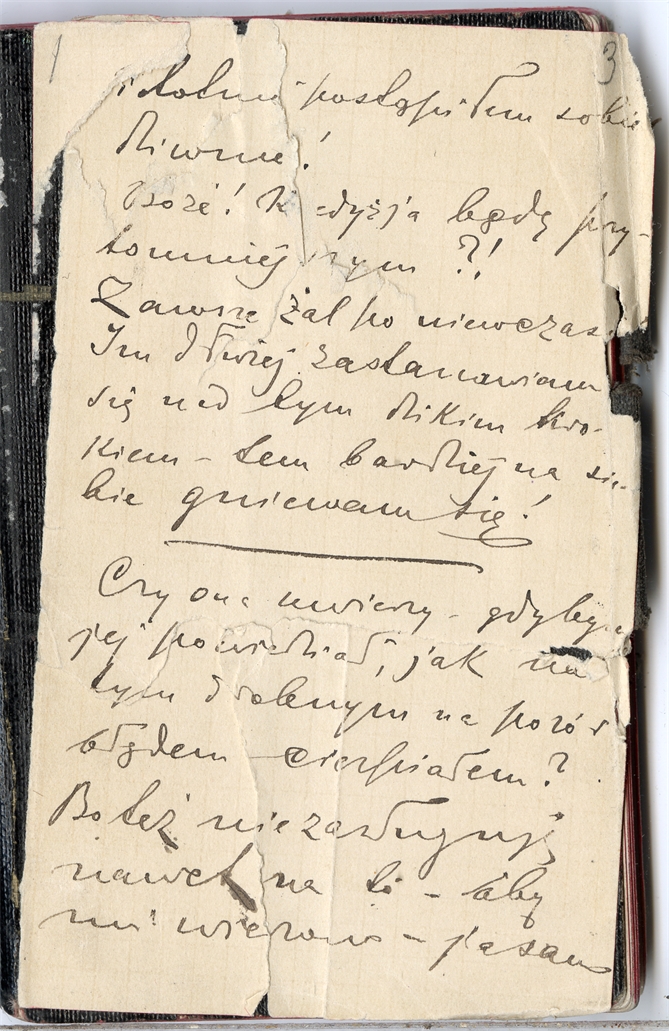 1 3
istotnie postąpiłem sobie
dziwnie!
Boże! Kiedyż ja będę przy-
tomniejszym ?!
Zawsze żal po niewczasie
Im dłużej zastanawiam
się nad tym dzikim kro-
kiem – tem bardziej na sie-
bie gniewam się!
Czy ona uwierzy – gdybym
jej powiedział, jak nad
tym drobnym na pozór
błędem – cierpiałem?
Bo też nie zasługuję
nawet na to – aby
mi wierzono – ja sam